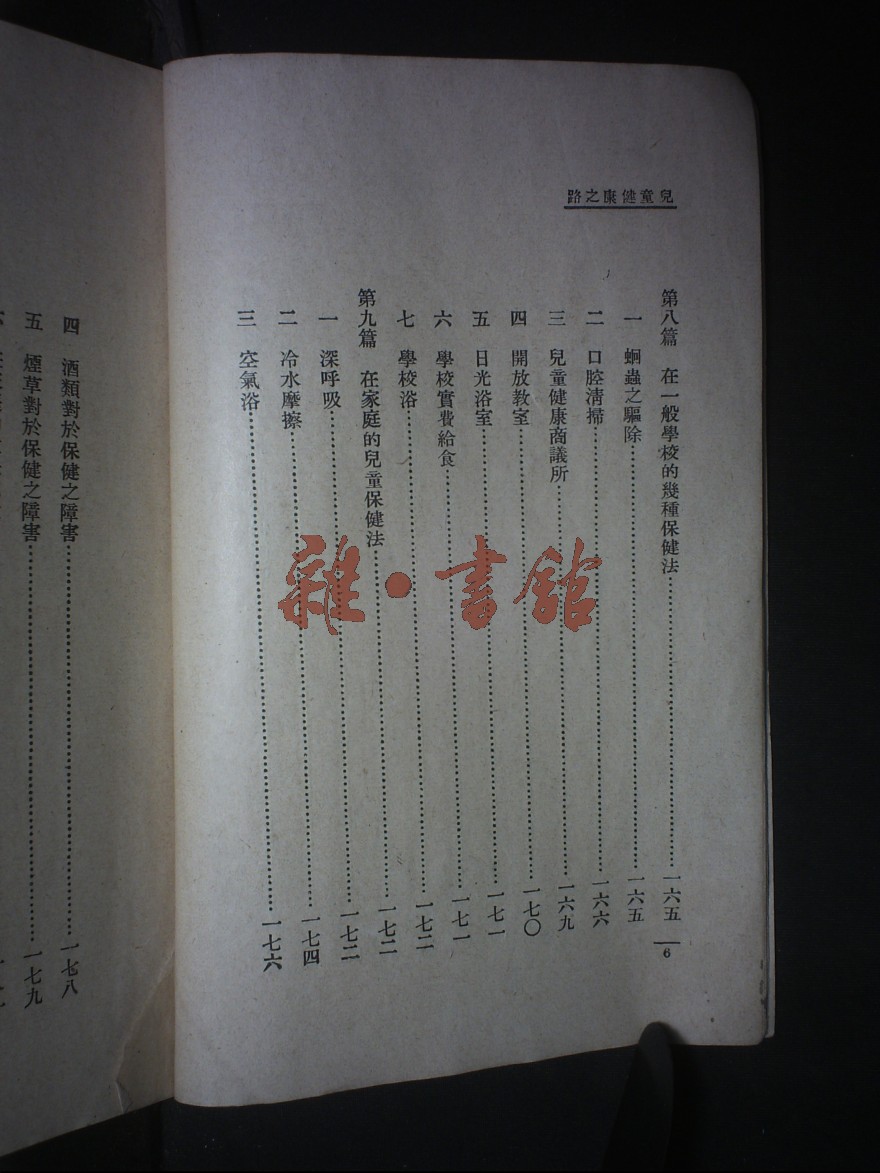 兒童健康之路
第八篇 在一般學校的幾種保健法……一六五
一 蛔蟲之驅除……一六五
二 口腔淸掃……一六六
三 兒童健康商議所……一六九
四 開放教室……一七〇
五 日光浴室……一七一
六 學校實費給食……一七一
七 學校浴……一七二
第九篇 在家庭的兒童保健法……一七二
一 深呼吸……一七二
二 冷水摩擦……一七四
三 空氣浴……一七六
6
四 酒類對於保健之障害……一七八
五 煙草對於保健之障害……一七九
雜·書館